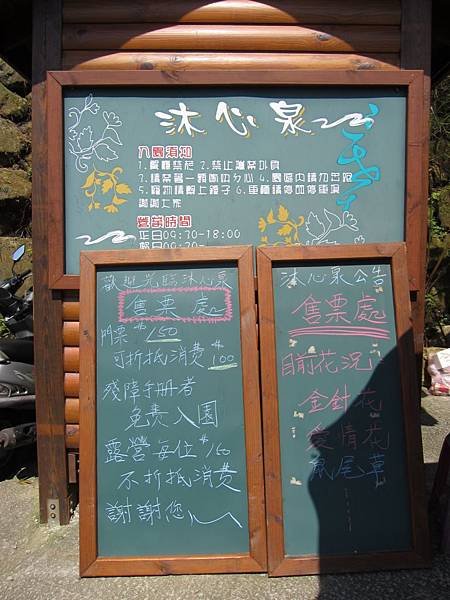 沐心泉
入園須知
1.餐廳禁菸 2.禁止攜帶外食
3.請帶著一顆愉悅分心 4.園區內請勿吸菸
5.寵物請繫上鍊子 6.車輛請停回停車場
謝謝上帝
營業時間
平日09:30-18:00
假日09:30-
歡迎光臨沐心泉
售票處
門票$150
可折抵消費$100
殘障手冊者
免費入園
露營每位$160
不折抵消費
謝謝您
沐心泉公告
售票處
目前花況
金針花
愛情花
鼠尾草